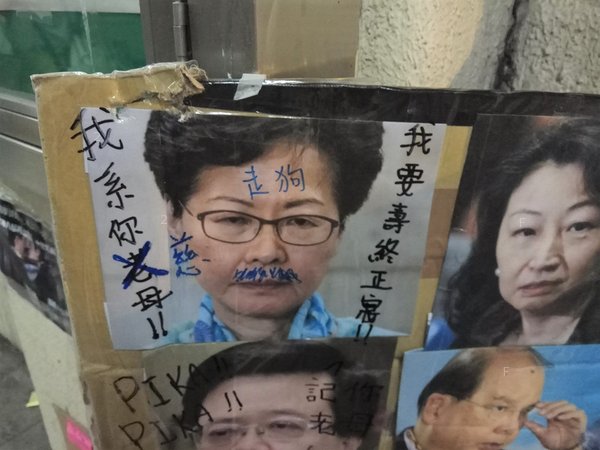 我系你老慈母!!
走狗
我要壽終正寢!!
PIKA!!
PIKA!!
記者
你母